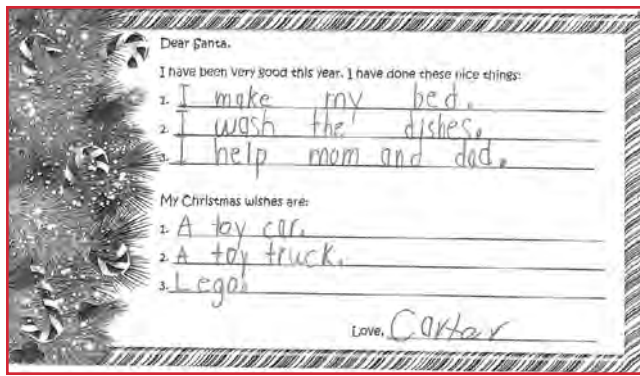 Dear Santa,
I have been very good this year. I have done these nice things:
1. I make my bed.
2. I wash the dishes.
3. I help mom and dad.
My Christmas wishes are:
1. A toy car.
2. A toy truck.
3. Lego.
Love, Carter